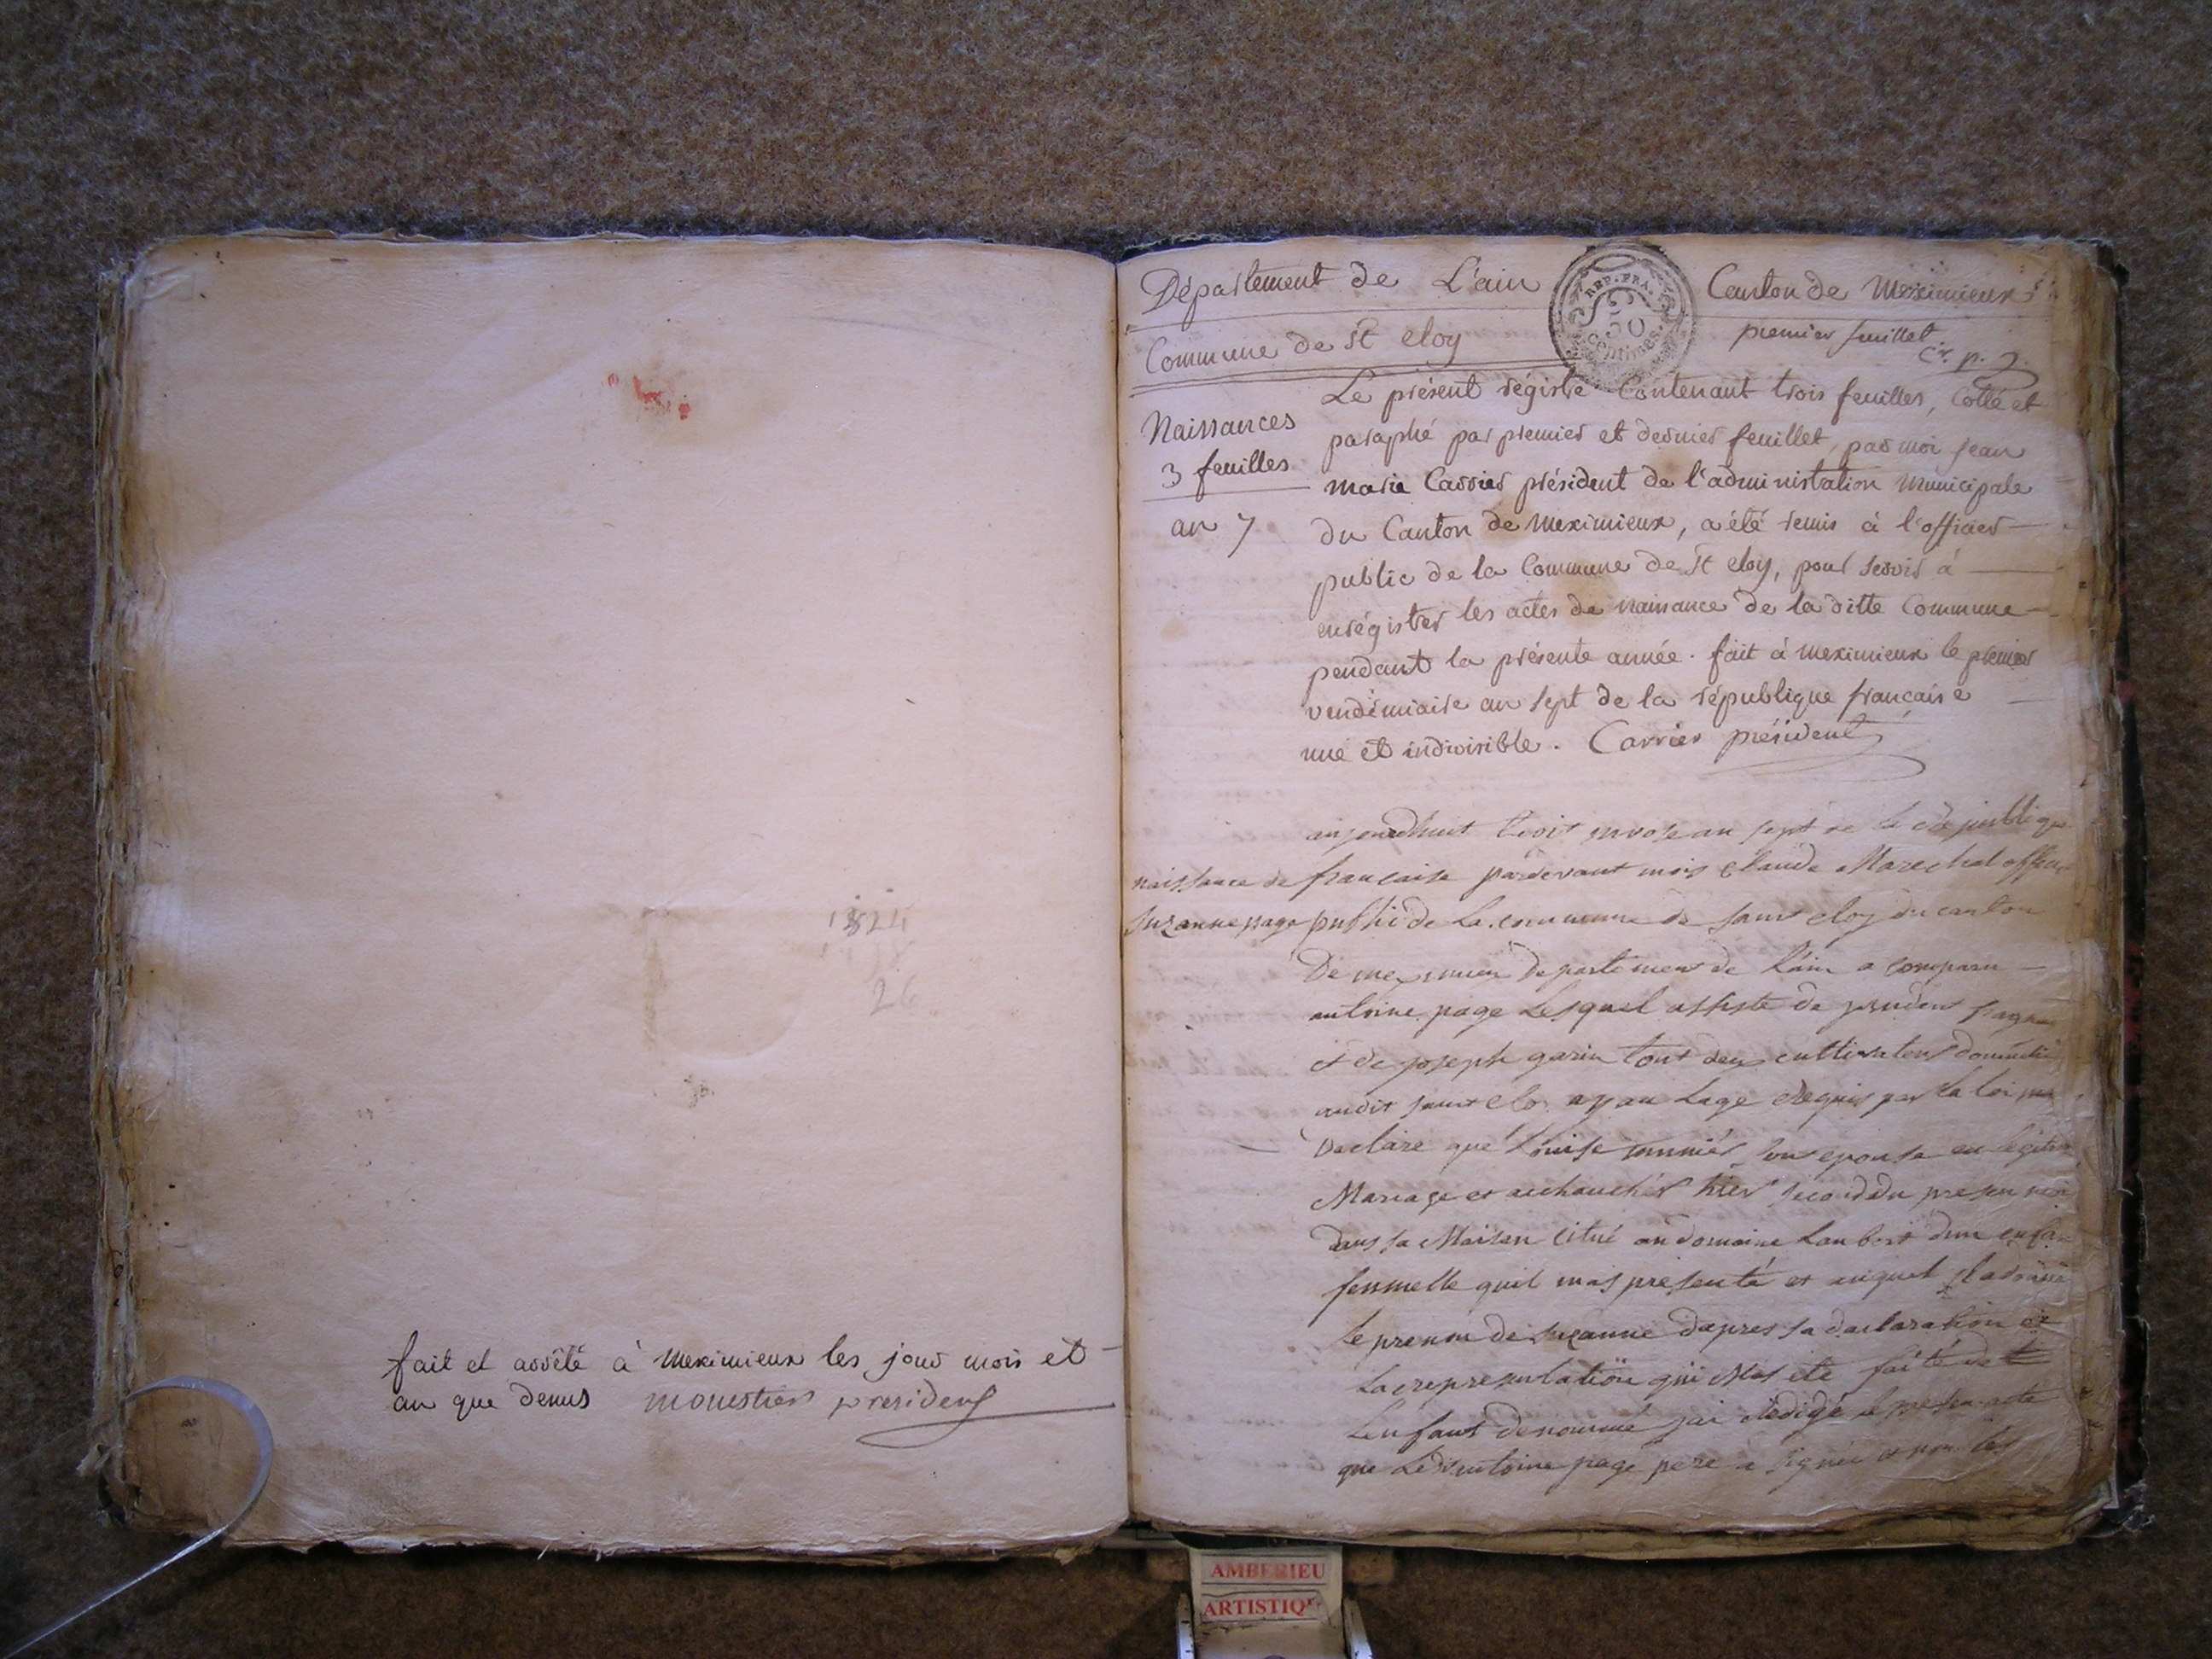 1824
26
fait et arrêté à meximieux les jour mois et
an que denus monestier president
Département de L'ain
REP. FRA.
50
centimes
Canton de Meximieux
Commune de St eloy
premier feuillet
C.r p.
Naissances
3 feuilles
an 7
Le présent régistre Contenant trois feuilles, Cotté et
paraphé par premier et dernier feuillet, par moi jean
marie Carrier président de l'administration Municipale
du Canton de Meximieux, a été remis à l'officier
public de la Commune de St eloy, pour servir à
enrégistrer les actes de naissance de la ditte Commune
pendant la présente année. fait à meximieux le premier
vendémiaire an sept de la république francaise
une et indivisible. Carrier président
naissance de
Suzanne page
aujourdhuit trois an sept de la republique
francaise pardevant mois Claude Marechal officier
public de La commune de saint eloy du canton
De meximieu departement de Lain a comparu
antoine page Lesquel assiste de prudent
et de joseph garin tout deux cultivateur
audit saint elo ayan Lage Requis par la loi ma
Declare que Louise son epouse en legitime
Mariage et achouchés hier second du presen moi
dans sa Maison citué au domaine Lambert dun enfan
femmelle quil mas presenté et auquel il a donné
Le prenom de suzanne dapres sa declaration et
La representation qui Mas ete faité de
Lenfant denommé jai Redigé le presen acte
que Ledi antoine page pere a signée et non les
AMBERIEU
ARTISTIQUE